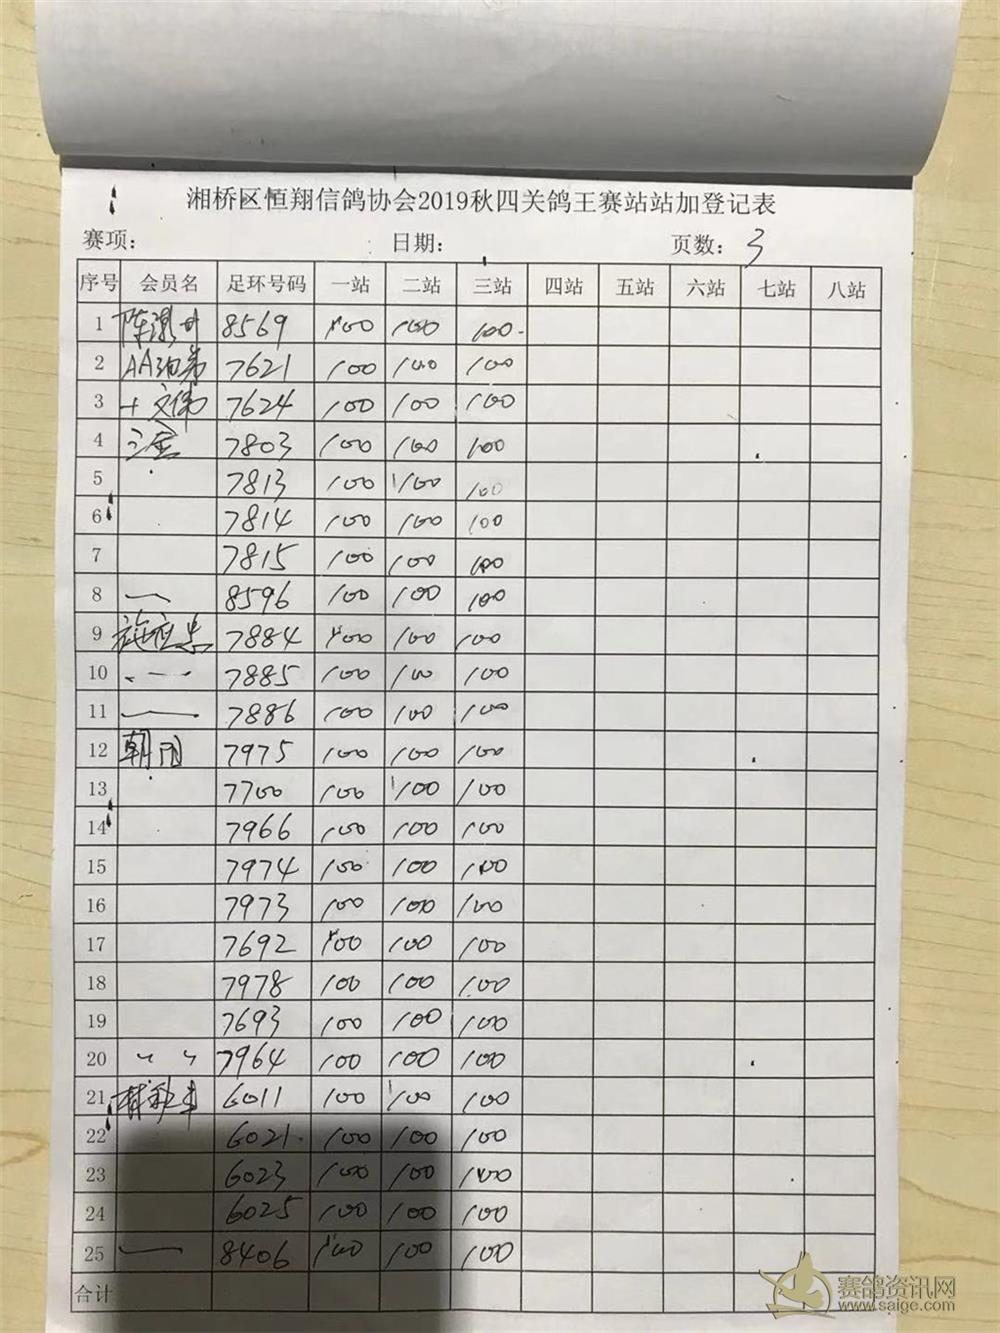 湘桥区恒翔信鸽协会2019秋四关鸽王赛站站加登记表
赛项: 日期: 页数: 3
序号 会员名 足环号码 一站 二站 三站 四站 五站 六站 七站 八站
1 8569 100 100 100
2 7621 100 100 100
3 7624 100 100 100
4 7803 100 100 100
5 7813 100 100 100
6 7814 100 100 100
7 7815 100 100 100
8 8596 100 100 100
9 7884 100 100 100
10 7885 100 100 100
11 7886 100 100 100
12 7975 100 100 100
13 7700 100 100 100
14 7966 100 100 100
15 7974 100 100 100
16 7973 100 100 100
17 7692 100 100 100
18 7978 100 100 100
19 7693 100 100 100
20 7964 100 100 100
21 6011 100 100 100
22 6021 100 100 100
23 6023 100 100 100
24 6025 100 100 100
25 8406 100 100 100
合计
赛鸽资讯网
www.saige.com